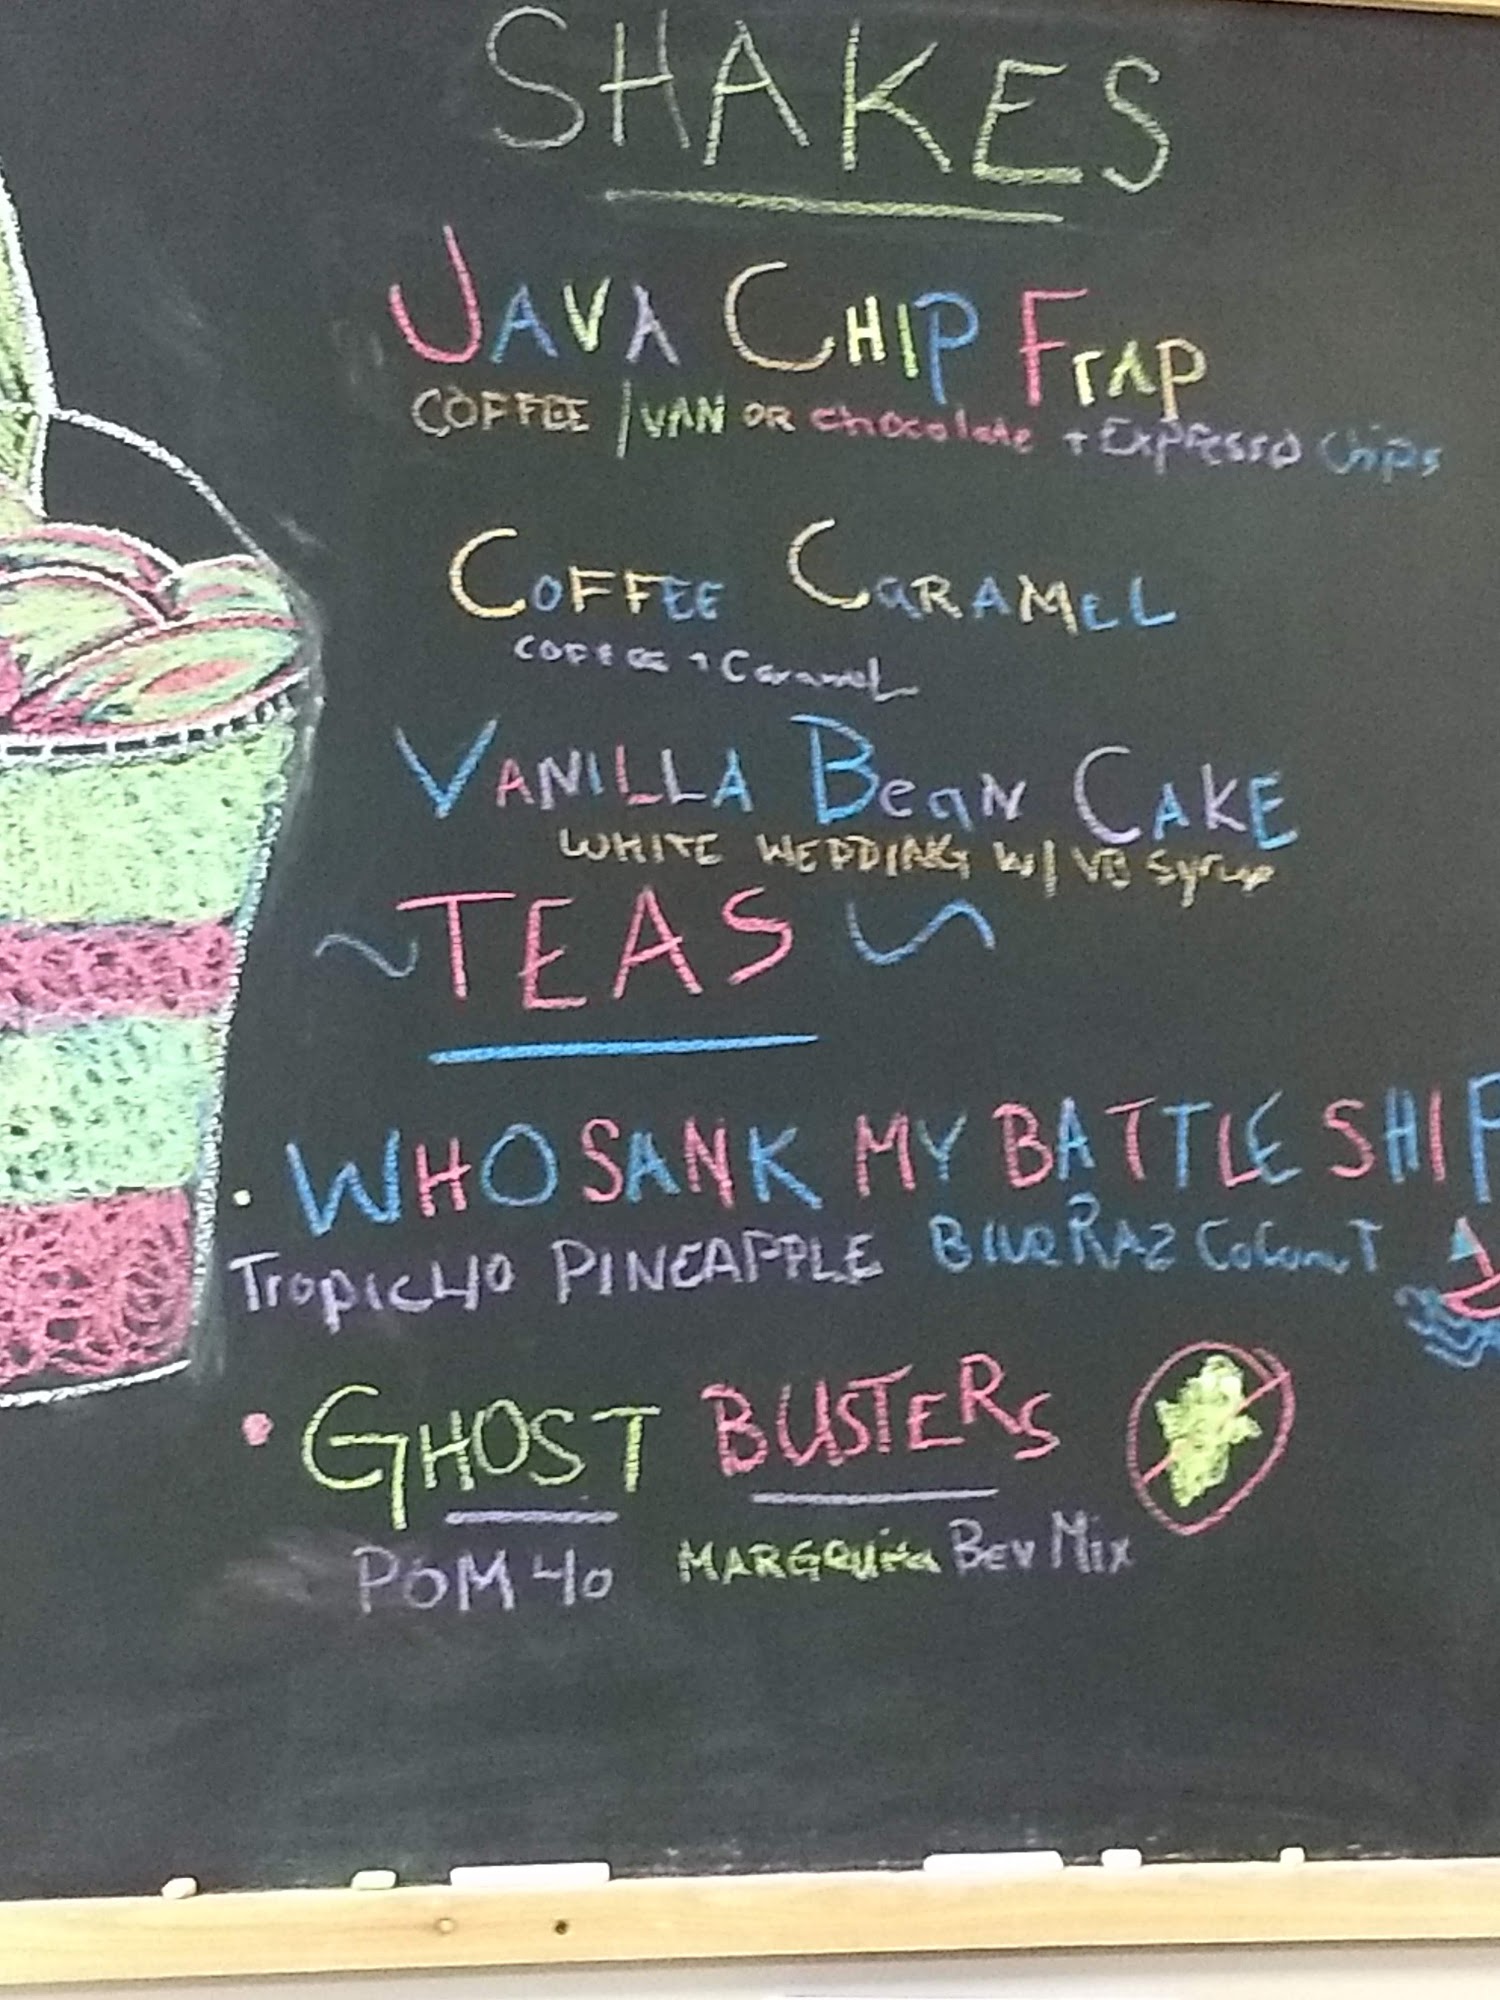 SHAKES
JAVA CHIP FrAP
COFFEE / VAN OR chocolate + Expresso Chips
COFFEE CaRAMEL
COFFEE + Caramel
VANILLA BeaN CAKE
WHITE WEDDING W/ VB Syrup
~TEAS~
· WHO SANK MY BATTLE SHIP
Tropic 40 PINEAPPLE Blue RAZ Coconut
• GHOST BUSTERS
POM 40 MARGaRita Bev Mix